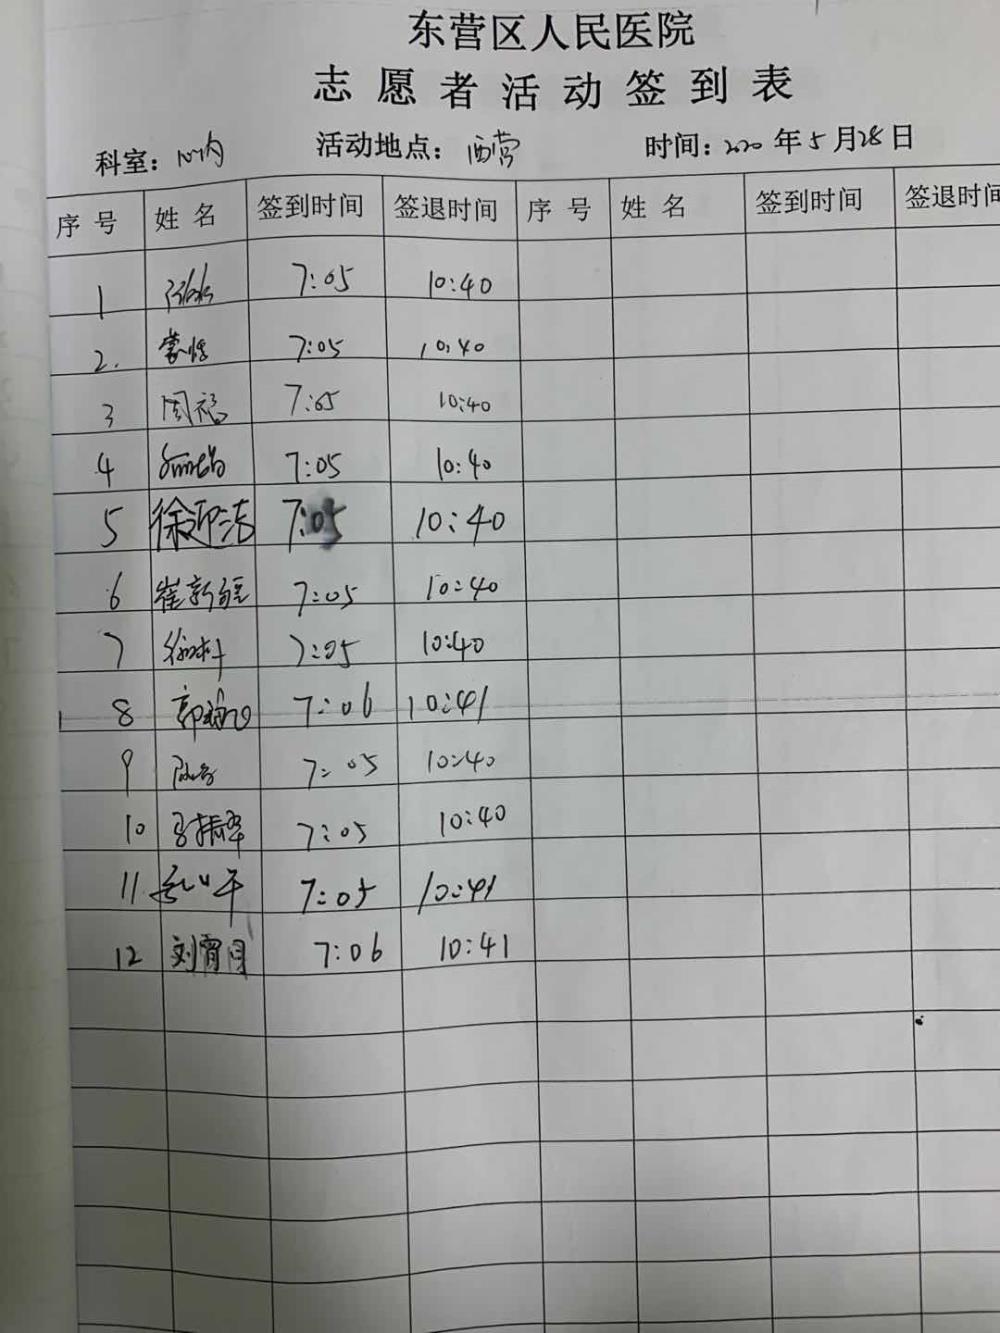 东营区人民医院
志愿者活动签到表
科室：心内 活动地点：西营 时间：2020年5月28日
序号 姓名 签到时间 签退时间 序号 姓名 签到时间 签退时间
1 7:05 10:40
2. 7:05 10:40
3 周福 7:05 10:40
4 7:05 10:40
5 徐迎洁 7:05 10:40
6 崔新 7:05 10:40
7 7:05 10:40
8 郭 7:06 10:41
9 7:05 10:40
10 7:05 10:40
11 7:05 10:41
12 刘霄 7:06 10:41